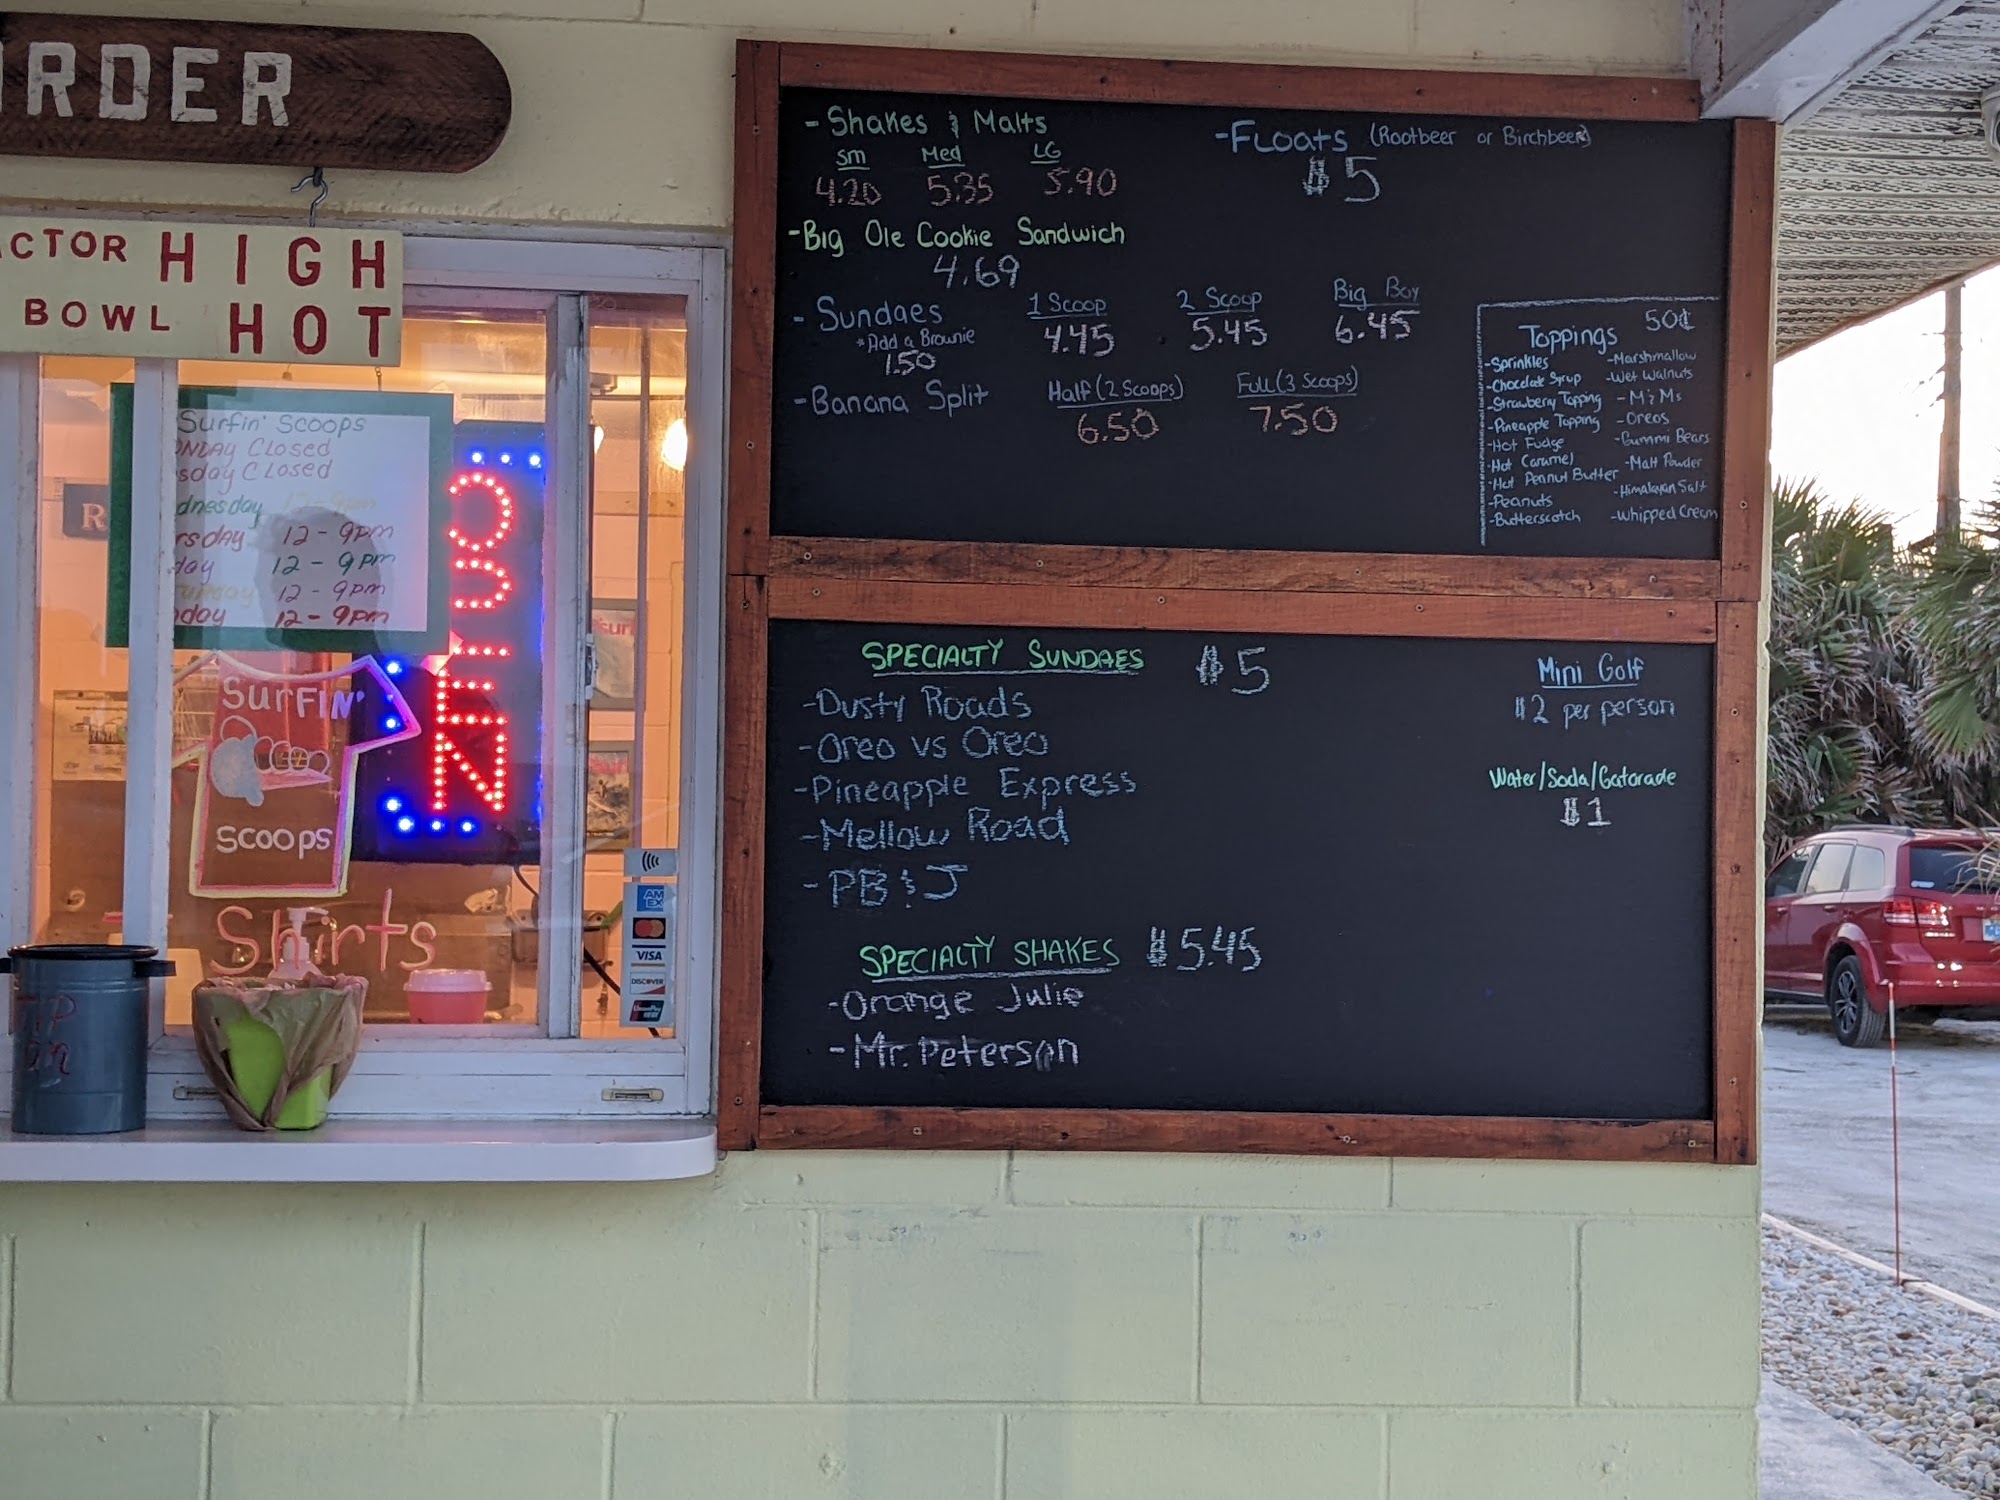 RDER
ACTOR HIGH
BOWL HOT
Surfin' Scoops
NDAY Closed
sday Closed
dnesday 12-9pm
rsday 12-9pm
day 12-9pm
12-9pm
day 12-9pm
OPEN
SurFIN'
SCOOPS
Shirts
AM EX
VISA
DISCOVER
- Shakes & Malts
Sm Med LG
4.20 5.35 5.90
- Big Ole Cookie Sandwich
4.69
- Sundaes 1 Scoop 2 Scoop Big Boy
4.45 5.45 6.45
*Add a Brownie
1.50
- Banana Split Half (2 Scoops) Full (3 Scoops)
6.50 7.50
- Floats (Rootbeer or Birchbeer)
$5
Toppings 50¢
- Sprinkles
- Chocolate Syrup
- Strawberry Topping
- Pineapple Topping
- Hot Fudge
- Hot Caramel
- Hot Peanut Butter
- Peanuts
- Butterscotch
- Marshmallow
- Wet Walnuts
- M&Ms
- Oreos
- Gummi Bears
- Malt Powder
- Himalayan Salt
- Whipped Cream
SPECIALTY SUNDAES $5
- Dusty Roads
- Oreo vs Oreo
- Pineapple Express
- Mellow Road
- PB & J
SPECIALTY SHAKES $5.45
- Orange Julie
- Mr. Peterson
Mini Golf
$2 per person
Water/Soda/Gatorade
$1